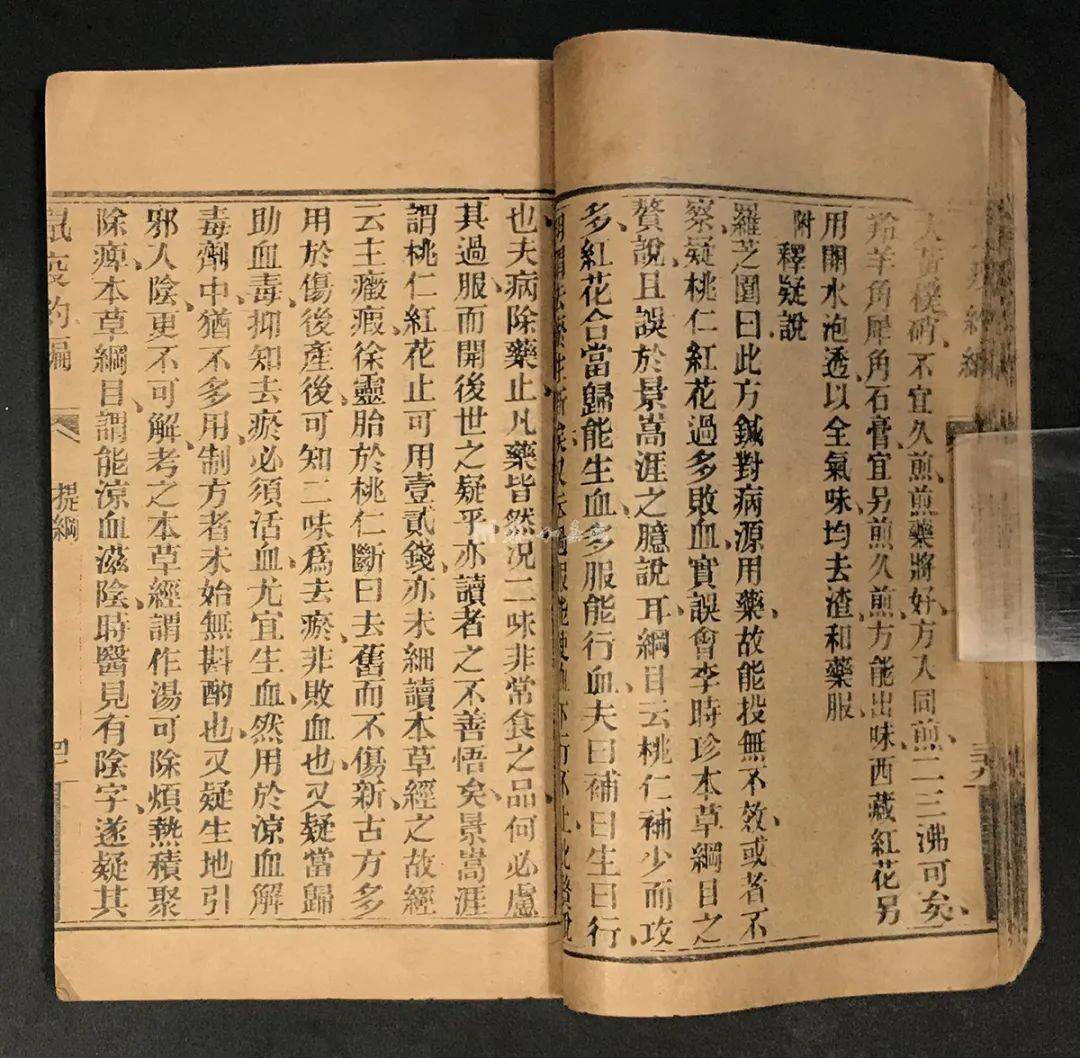 大黃樸硝不宜久煎煎藥將好方入同煎二三沸可矣
羚羊角犀角石膏宜另煎久煎方能出味西藏紅花另
用開水泡透以全氣味均去渣和藥服
附釋疑說
羅芝園曰此方鍼對病源用藥故能投無不效或者不
察疑桃仁紅花過多敗血實誤會李時珍本草綱目之
贅說且誤於景嵩涯之臆說耳綱目云桃仁補少而攻
多紅花合當歸能生血多服能行血夫曰補曰生曰行
過服能使血
也夫病除藥止凡藥皆然況二味非常食之品何必慮
其過服而開後世之疑乎亦讀者之不善悟矣景嵩涯
謂桃仁紅花止可用壹貳錢亦未細讀本草經之故經
云主癥瘕徐靈胎於桃仁斷曰去舊而不傷新古方多
用於傷後產後可知二味爲去瘀非敗血也又疑當歸
助血毒抑知去瘀必須活血尤宜生血然用於涼血解
毒劑中猶不多用制方者未始無斟酌也又疑生地引
邪入陰更不可解考之本草經謂作湯可除煩熱積聚
除痺本草綱目謂能涼血滋陰時醫見有陰字遂疑其
鼠疫約編
提綱
四